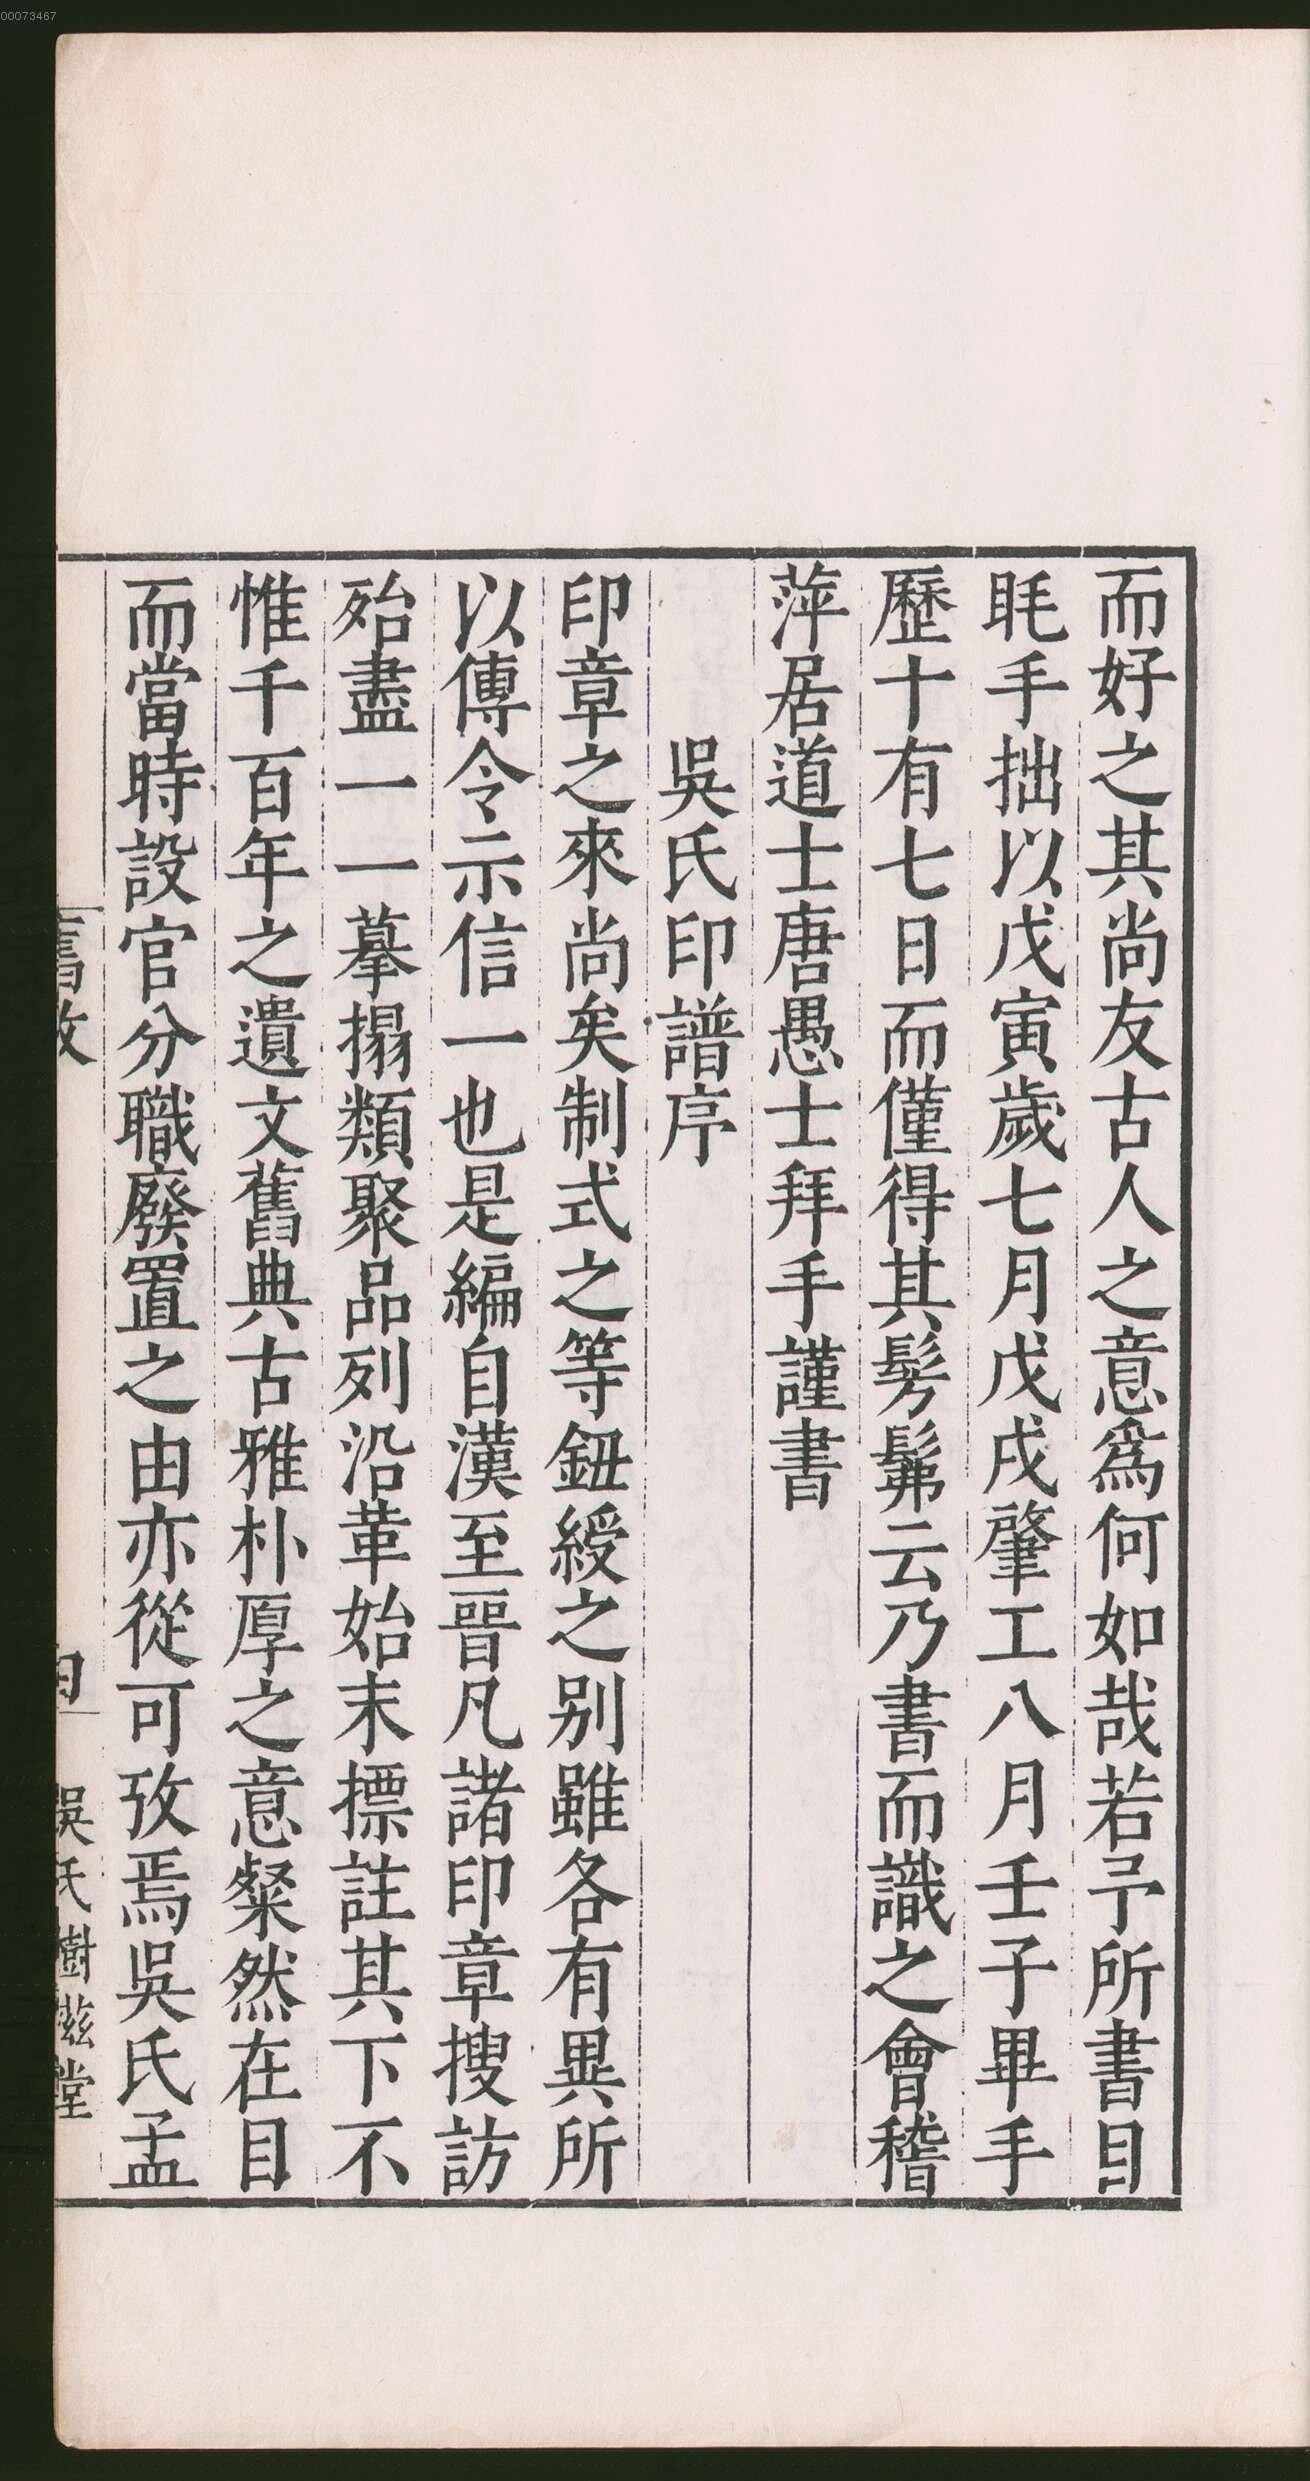 00073467
而好之其尚友古人之意爲何如哉若予所書目
眊手拙以戊寅歲七月戊戌肇工八月壬子畢手
歷十有七日而僅得其髣髴云乃書而識之會稽
萍居道士唐愚士拜手謹書
吳氏印譜序
印章之來尚矣制式之等鈕綬之别雖各有異所
以傳令示信一也是編自漢至晉凡諸印章搜訪
殆盡一一摹搨類聚品列沿革始末摽註其下不
惟千百年之遺文舊典古雅朴厚之意粲然在目
而當時設官分職廢置之由亦從可攷焉吳氏孟
舊敘
四
吳氏樹滋堂